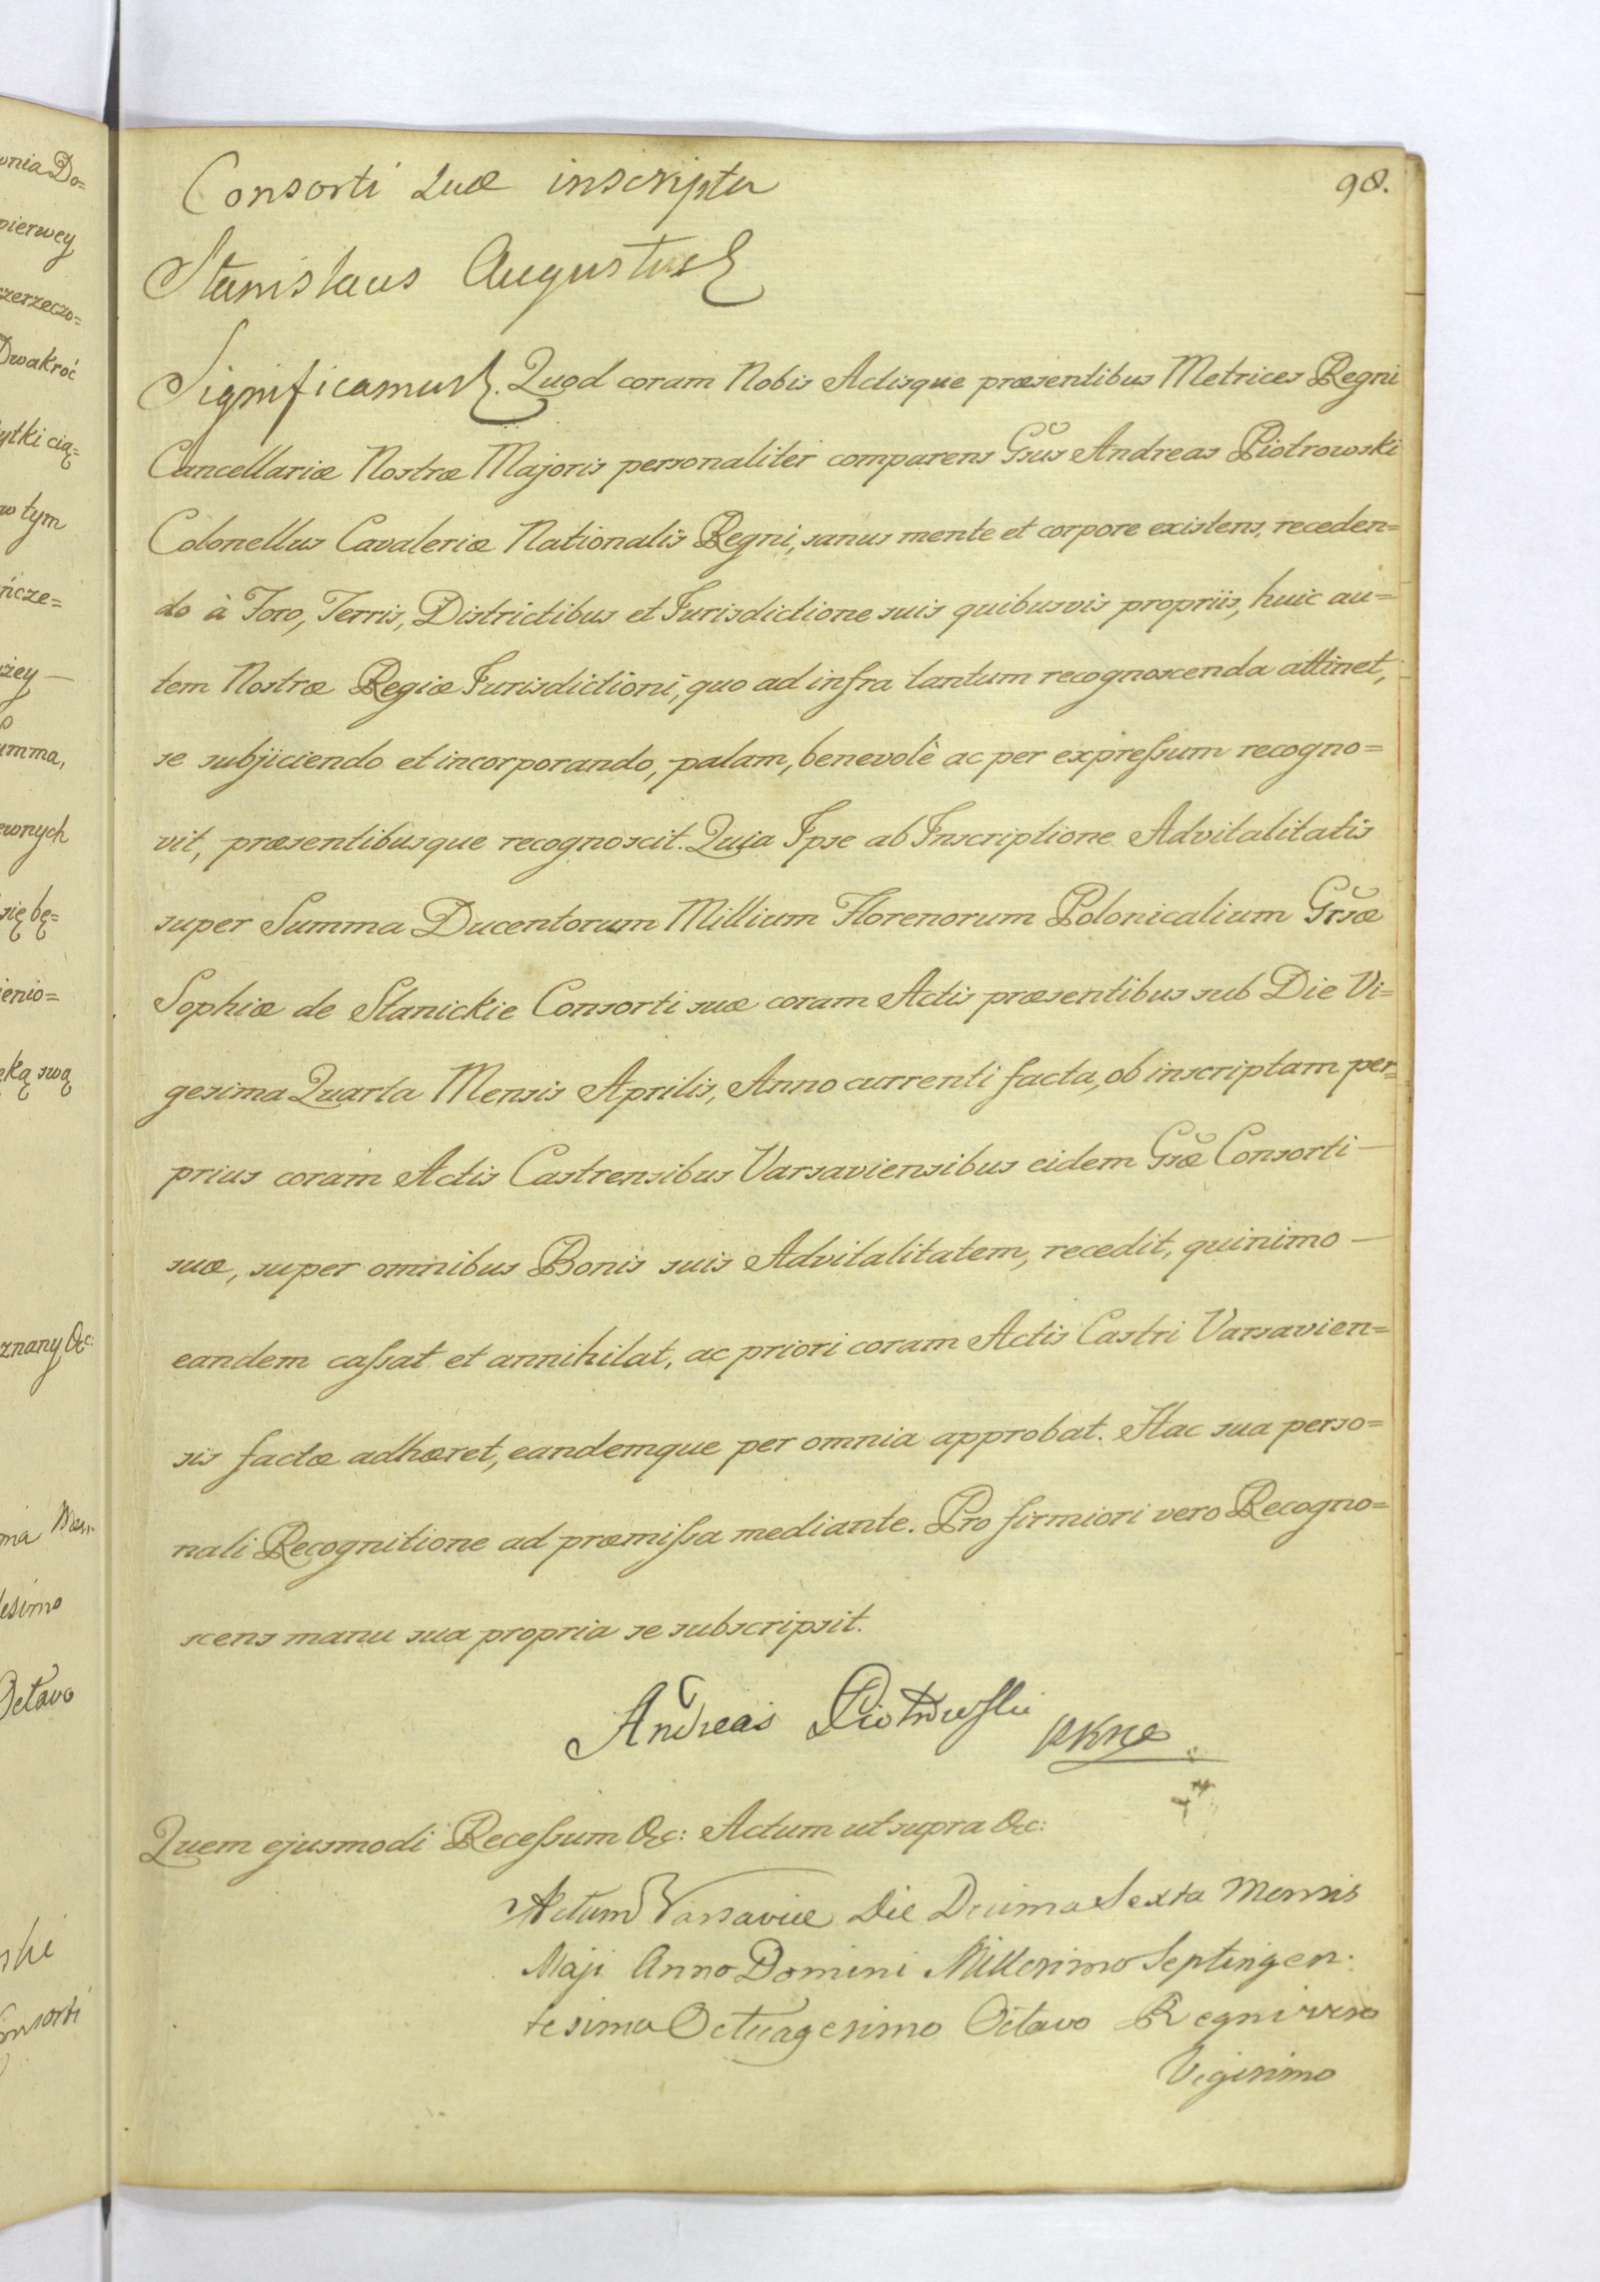 98.
Consorti suæ inscripta
Stanislaus Augustus
Significamus. Quod coram Nobis Actisque præsentibus Metrices Regni
Cancellariæ Nostræ Majoris personaliter comparens Gsus Andreas Piotrowski
Colonellus Cavaleriæ Nationalis Regni, sanus mente et corpore existens, receden=
do à Foro, Terris, Districtibus et Jurisdictione suis quibusvis propriis, huic au=
tem Nostræ Regiæ Jurisdictioni, quo ad infra tantum recognoscenda attinet,
se subjiciendo et incorporando, palam, benevolè ac per expreſsum recogno=
vit, præsentibusque recognoscit. Quia Ipse ab Inscriptione Advitalitatis
super Summa Ducentorum Millium Florenorum Polonicalium Grsæ
Sophiæ de Stanickie Consorti suæ coram Actis præsentibus sub Die Vi=
gesima Quarta Mensis Aprilis, Anno currenti facta, ob inscriptam per=
prius coram Actis Castrensibus Varsaviensibus eidem Gsæ Consorti —
suæ, super omnibus Bonis suis Advitalitatem, recedit, quinimo —
eandem caſsat et annihilat, ac priori coram Actis Castri Varsavien=
sis factæ adhæret, eandemque per omnia approbat. Hac sua perso=
nali Recognitione ad præmiſsa mediante. Pro firmiori vero Recogno=
scens manu sua propria se subscripsit.
Andreas Piotrowski PKNP
Quem ejusmodi Receſsum &c: Actum ut supra &c:
Actum Varsaviæ Die Decima Sexta Mensis
Maji Anno Domini Millesimo Septingen:
tesimo Octuagesimo Octavo Regni vero
Vigesimo